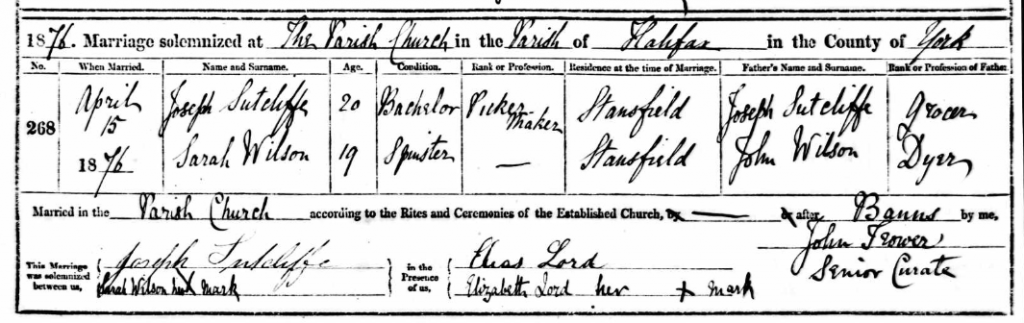 1876. Marriage solemnized at The Parish Church in the Parish of Halifax in the County of York
No. When Married. Name and Surname. Age. Condition. Rank or Profession. Residence at the time of Marriage. Father's Name and Surname. Rank or Profession of Father
268 April 15 1876 Joseph Sutcliffe 20 Bachelor Picker Maker Stansfield Joseph Sutcliffe Grocer
Sarah Wilson 19 Spinster — Stansfield John Wilson Dyer
Married in the Parish Church according to the Rites and Ceremonies of the Established Church, by — or after Banns by me,
John Trower
Senior Curate
This Marriage was solemnized between us,
Joseph Sutcliffe
Sarah Wilson her X mark
in the Presence of us,
Elias Lord
Elizabeth Lord her X mark